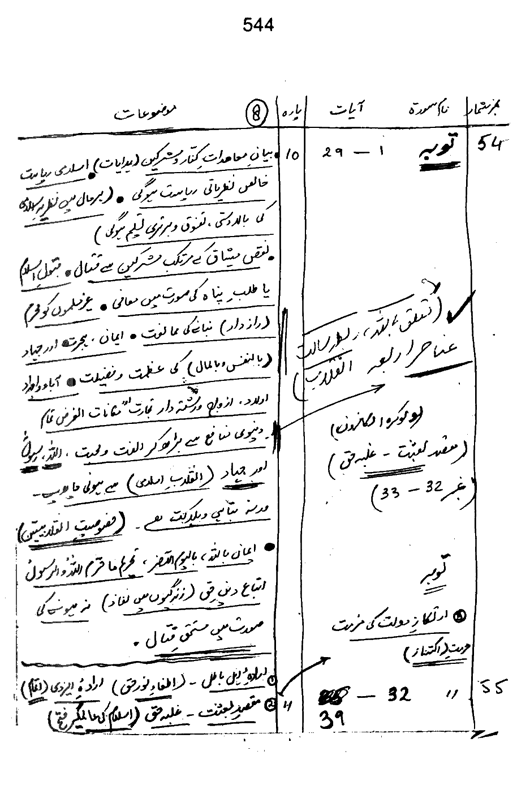 544
نمبر شمار نام سورۃ آیات پارہ 8 موضوعات
54 توبہ 1 – 29 10 بیان معاہدات کفار و مشرکین (ہدایات) اسلامی ریاست
خالص نظریاتی ریاست ہوگی (بہرحال میں نظریہ
کی بالادستی، تفوق و برتری تسلیم ہوگی)
نقض میثاق کے مرتکب مشرکین سے قتال قبول اسلام
یا طلب پناہ کی صورت میں معافی غیر مسلموں کو محرم
(رازدار) بنانے کی ممانعت ایمان، ہجرت اور جہاد
(بالنفس و بالمال) کی عظمت و فضیلت آباء و اجداد
اولاد، ازواج و رشتہ دار تجارت مکانات الغرض تمام
دنیوی منافع سے بڑھ کر الفت و محبت، اللہ، رسول
اور جہاد (انقلاب اسلامی) سے ہونی چاہیے۔
ورنہ تباہی و ہلاکت ہے۔
ایمان باللہ، بالیوم الآخر، تحریم ما حرم اللہ و الرسول
اتباع دین حق (زندگیوں میں نفاذ) نہ ہونے کی
صورت میں مستحق قتال۔
(تعلق باللہ،
عناصر اربعہ انقلاب)
(مقصد بعثت – غلبہ حق)
(33 – 32
توبہ
ارتکاز دولت کی مذمت
55 〃 32 – 39
ارادۂ اہل باطل – (اطفاء نور حق) ارادۂ ایزدی
مقصد بعثت – غلبہ حق (اسلام کی عالمگیر فتح)